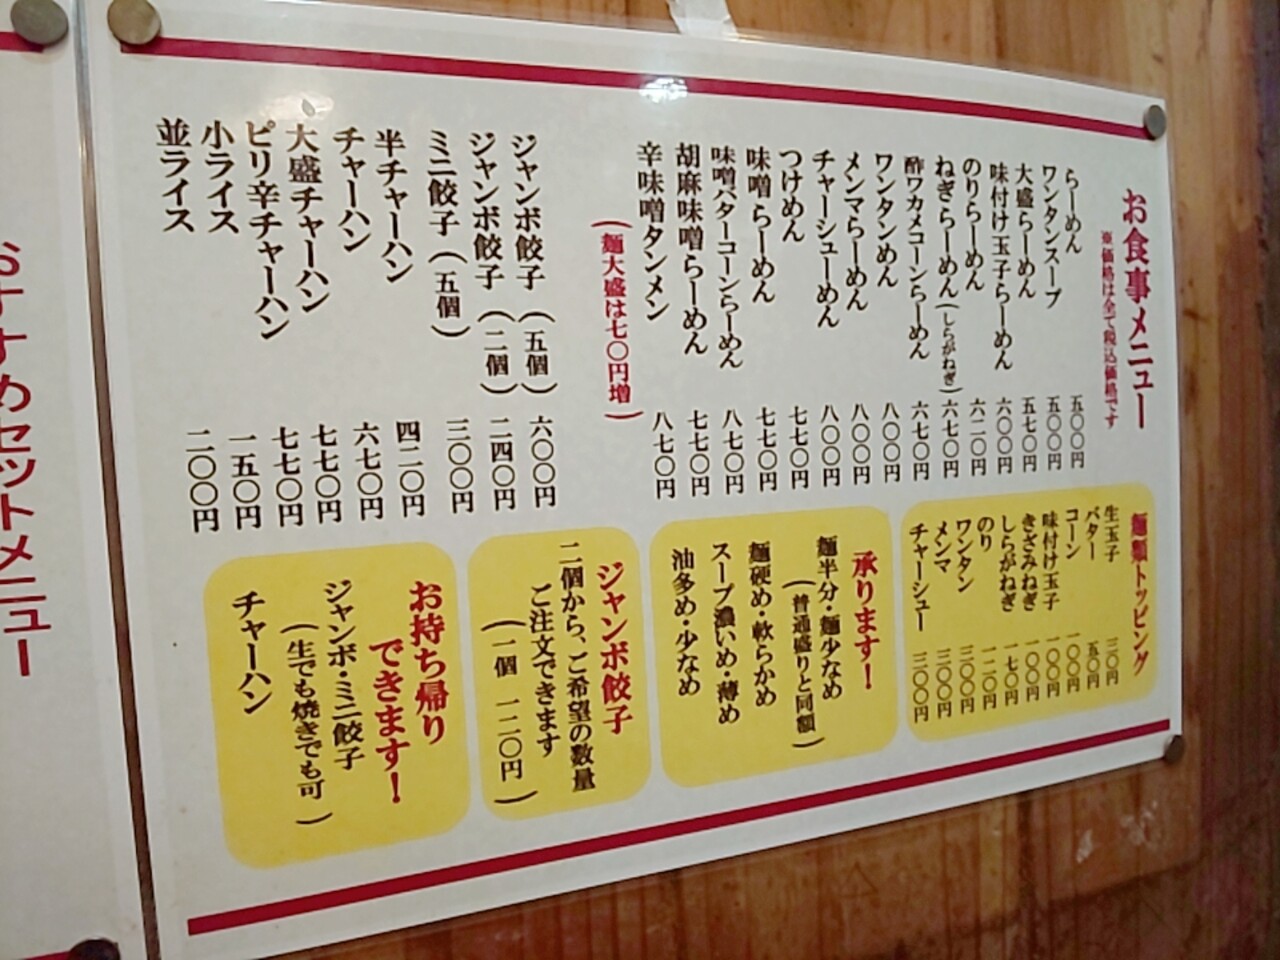 お食事メニュー
※価格は全て税込価格です
らーめん 五〇〇円
ワンタンスープ 五〇〇円
大盛らーめん 五七〇円
味付け玉子らーめん 六〇〇円
のりらーめん 六二〇円
ねぎらーめん(しらがねぎ) 六七〇円
酢ワカメコーンらーめん 六七〇円
ワンタンめん 八〇〇円
メンマらーめん 八〇〇円
チャーシューめん 八〇〇円
つけめん 七七〇円
味噌らーめん 七七〇円
味噌バターコーンらーめん 八七〇円
胡麻味噌らーめん 七七〇円
辛味噌タンメン 八七〇円
(麺大盛は七〇円増)
ジャンボ餃子(五個) 六〇〇円
ジャンボ餃子(二個) 二四〇円
ミニ餃子(五個) 三〇〇円
半チャーハン 四二〇円
チャーハン 六七〇円
大盛チャーハン 七七〇円
ピリ辛チャーハン 七七〇円
小ライス 一五〇円
並ライス 二〇〇円
麺類トッピング
生玉子 三〇円
バター 五〇円
コーン 一〇〇円
味付け玉子 一〇〇円
きざみねぎ 一〇〇円
しらがねぎ 一七〇円
のり 一二〇円
ワンタン 三〇〇円
メンマ 三〇〇円
チャーシュー 三〇〇円
承ります！
麺半分・麺少なめ
(普通盛りと同額)
麺硬め・軟らかめ
スープ濃いめ・薄め
油多め・少なめ
ジャンボ餃子
二個から、ご希望の数量
ご注文できます
(一個 一二〇円)
お持ち帰り
できます！
ジャンボ・ミニ餃子
(生でも焼きでも可)
チャーハン
おすすめセットメニュー